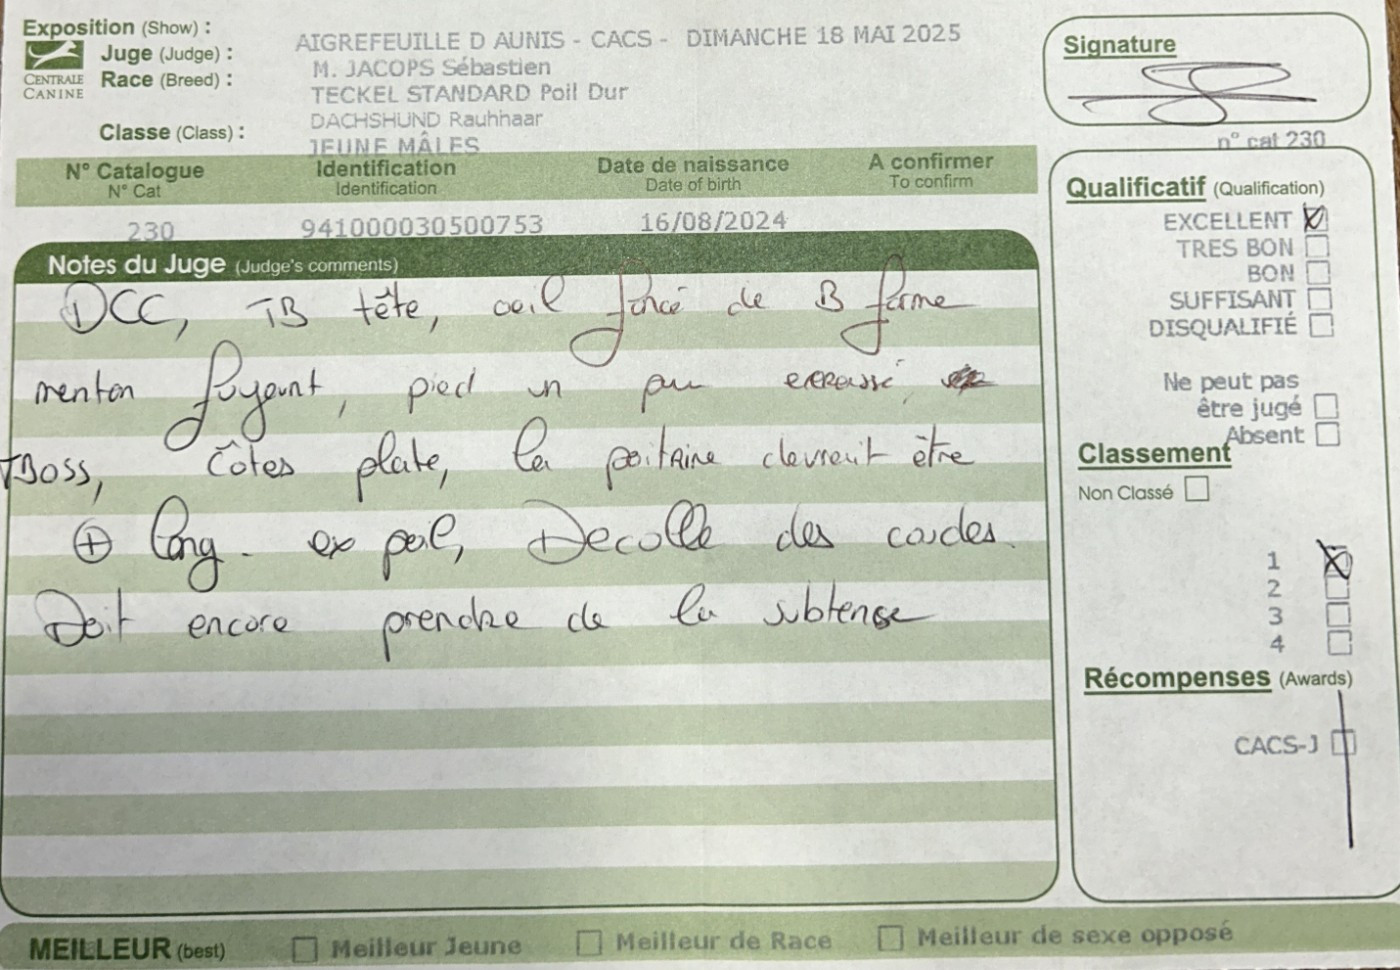 Exposition (Show) : AIGREFEUILLE D AUNIS - CACS - DIMANCHE 18 MAI 2025
Juge (Judge) : M. JACOPS Sébastien
CENTRALE CANINE
Race (Breed) : TECKEL STANDARD Poil Dur
DACHSHUND Rauhhaar
Classe (Class) : JEUNE MÂLES
N° Catalogue Identification Date de naissance A confirmer
N° Cat Identification Date of birth To confirm
230 941000030500753 16/08/2024
Notes du Juge (Judge's comments)
DCC, TB tête, oeil foncé de B forme
menton fuyant, pied un peu
TBoss, Côtes plate, la poitrine devrait être
⊕ long. ex poil, Decolle des coudes.
Doit encore prendre de la
Signature
n° cat 230
Qualificatif (Qualification)
EXCELLENT
TRES BON
BON
SUFFISANT
DISQUALIFIÉ
Ne peut pas
être jugé
Absent
Classement
Non Classé
1
2
3
4
Récompenses (Awards)
CACS-J
MEILLEUR (best) Meilleur Jeune Meilleur de Race Meilleur de sexe opposé